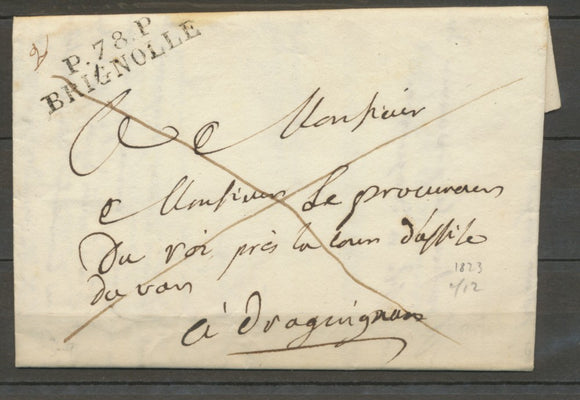 P.78.P
BRIGNOLLE
A Monsieur
Monsieur Le procureur
Du roi près la Cour d'assise
du var
à draguignan
1823